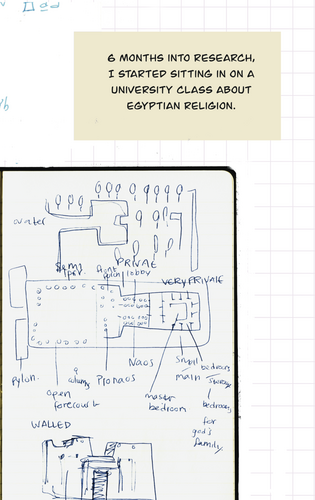 6 MONTHS INTO RESEARCH,
I STARTED SITTING IN ON A
UNIVERSITY CLASS ABOUT
EGYPTIAN RELIGION.
water
PRIVATE
lobby
VERY PRIVATE
Pylon
open
forecourt
Pronaos
Naos
master
bedroom
Small
main
bedrooms
bedrooms
for
god's
family.
WALLED